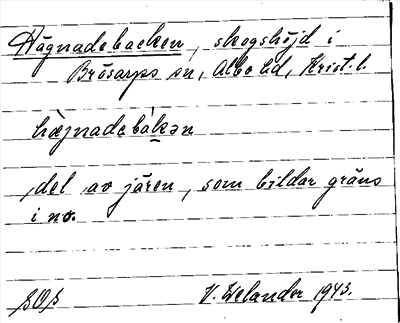 Hägnadebacken, skogshöjd i
Brösarps sn, Albo hd, Krist. l.
hæ̀jnadebákən
del av jären, som bildar gräns
i no.
SOS V. Welander 1943.